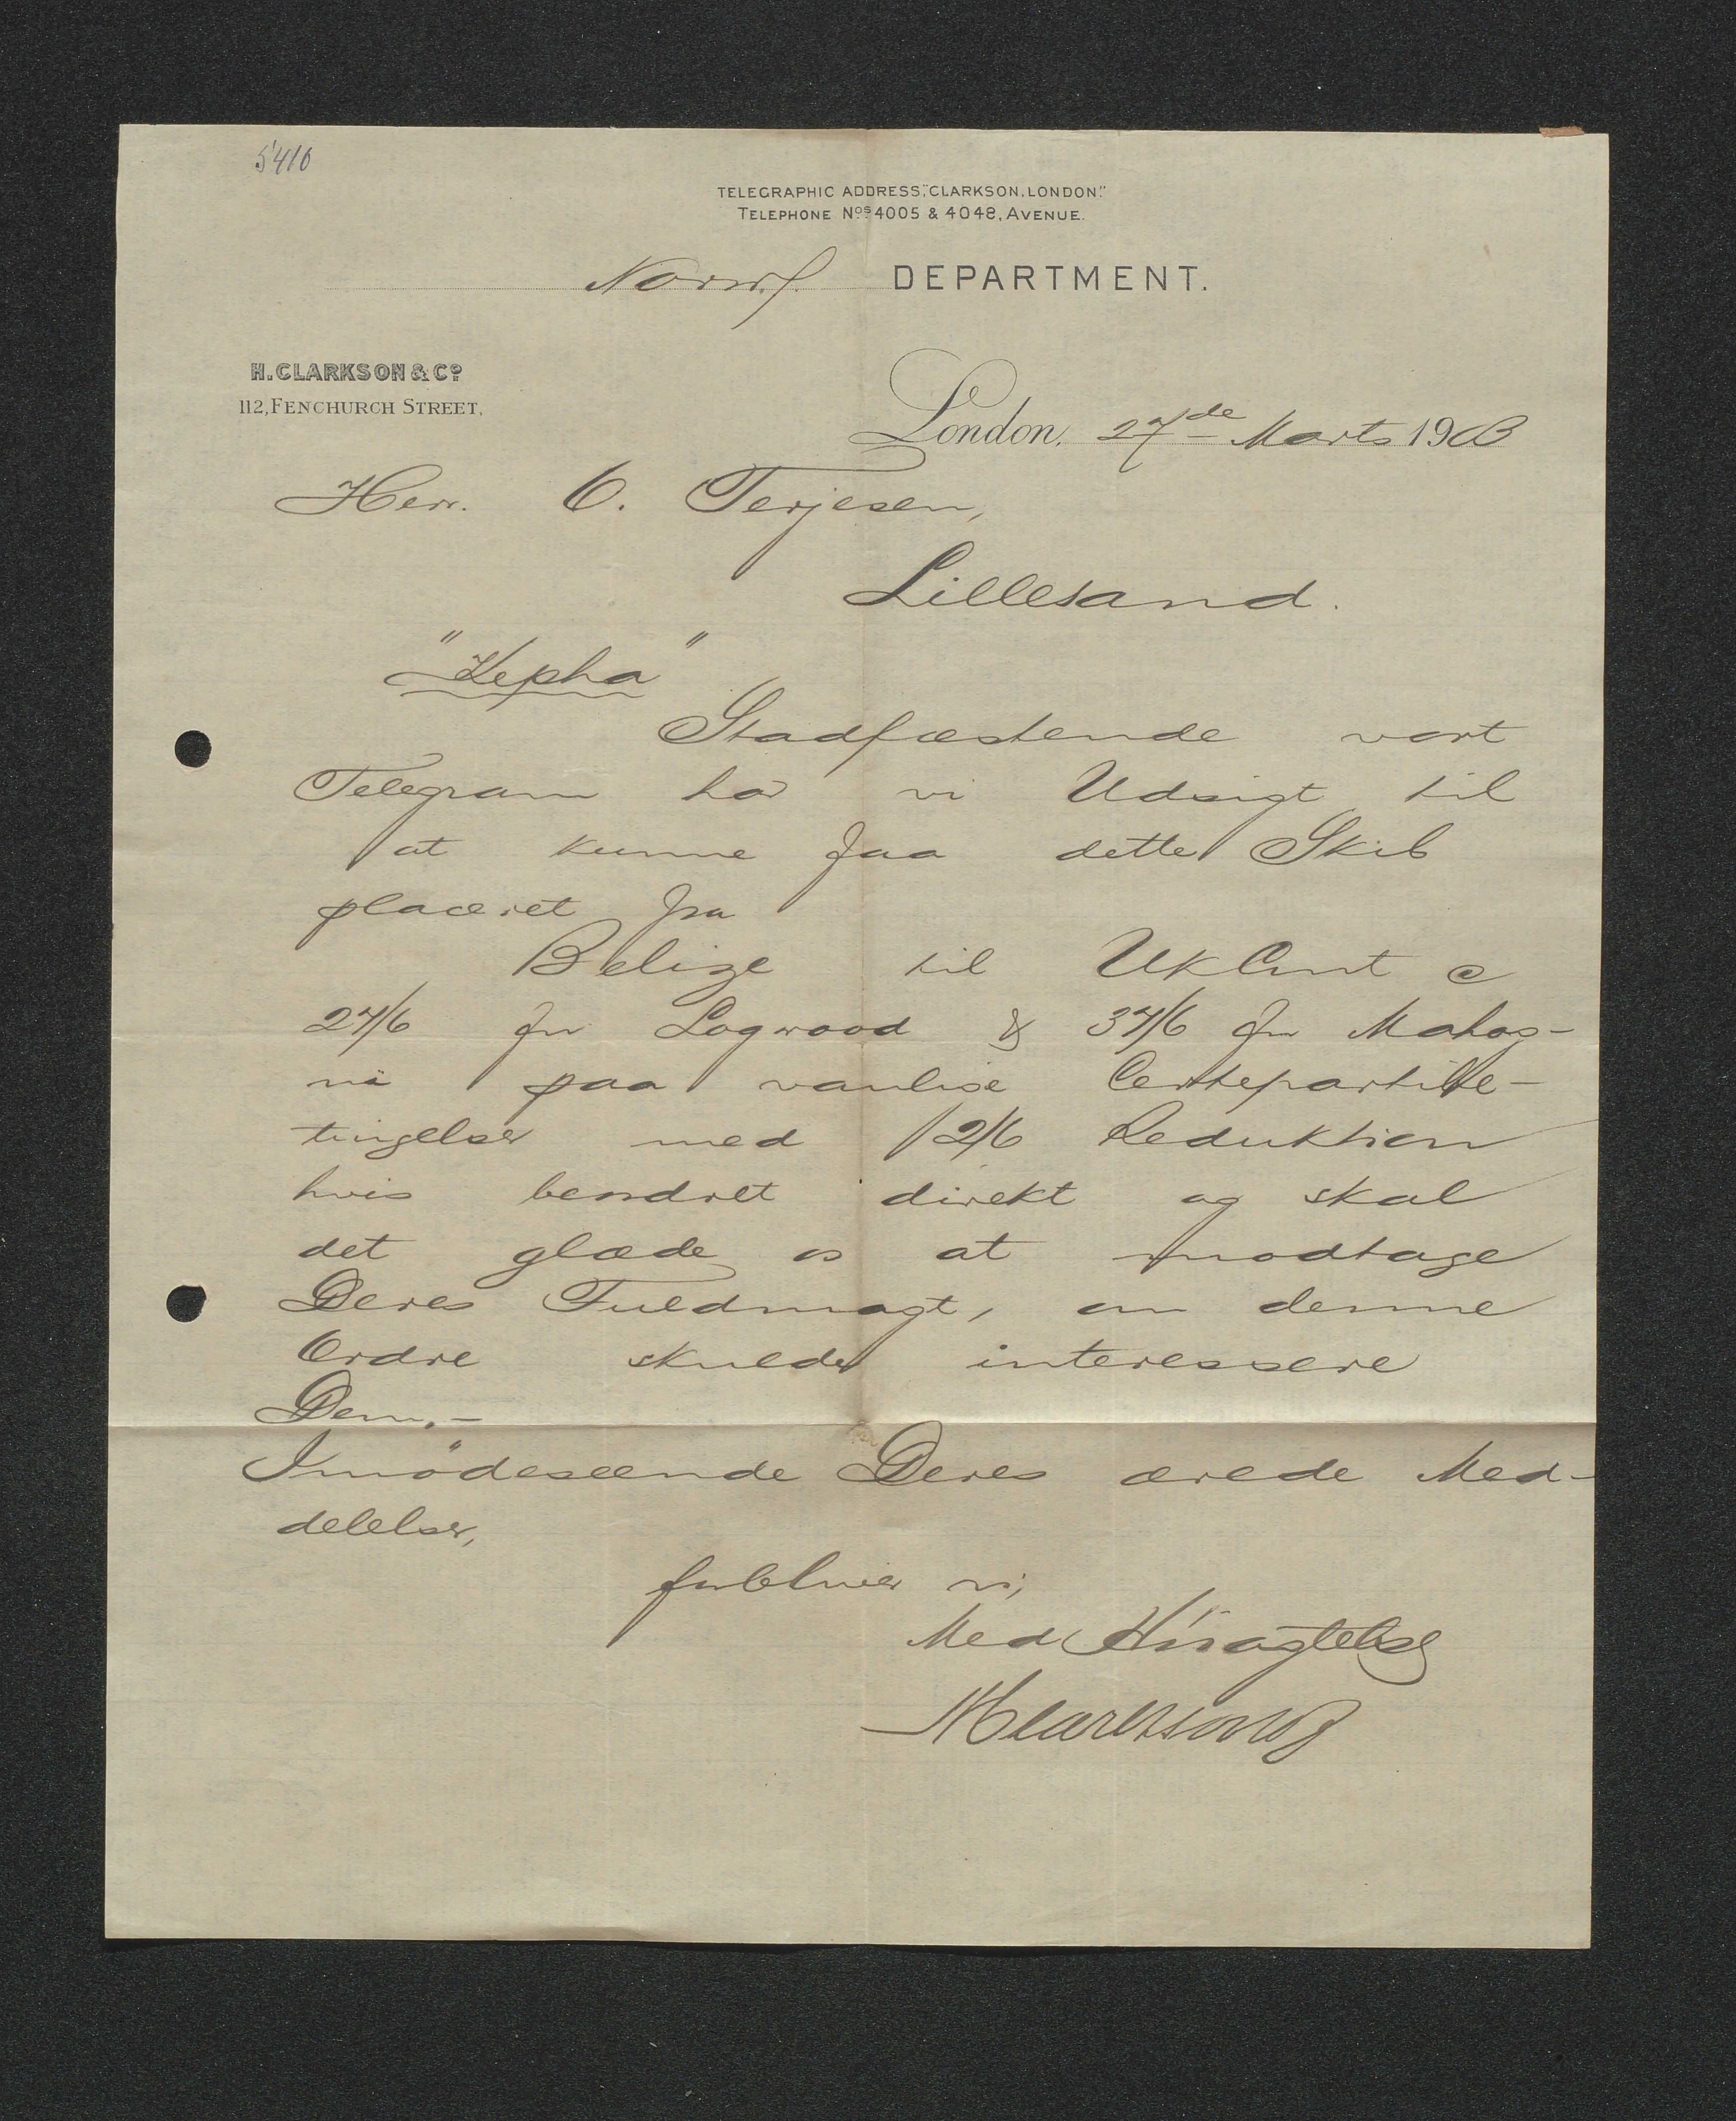 5410
TELEGRAPHIC ADDRESS, "CLARKSON, LONDON."
TELEPHONE Nos. 4005 & 4048, AVENUE.
DEPARTMENT.
H. CLARKSON & Co.
112, FENCHURCH STREET,
London, 27de Marts 1903
Herr. O. Terjesen,
Lillesand.
"Kepha"
Stadfæstende vort
Telegram har vi Udsigt til
at kunne faa dette Skib
placeret fra
Belize til UKCont a
27/6 for Logwood & 37/6 for Mahog-
ni paa vanlige Certepartibe-
tingelser med 2/6 Reduktion
hvis beordret direkt og skal
det glæde os at modtage
Deres Fuldmagt, om denne
Ordre skulde interessere
Dem.-
Imødeseende Deres ærede Med-
delelser,
forbliver vi,
Med Høiagtelse
HClarkson & Co